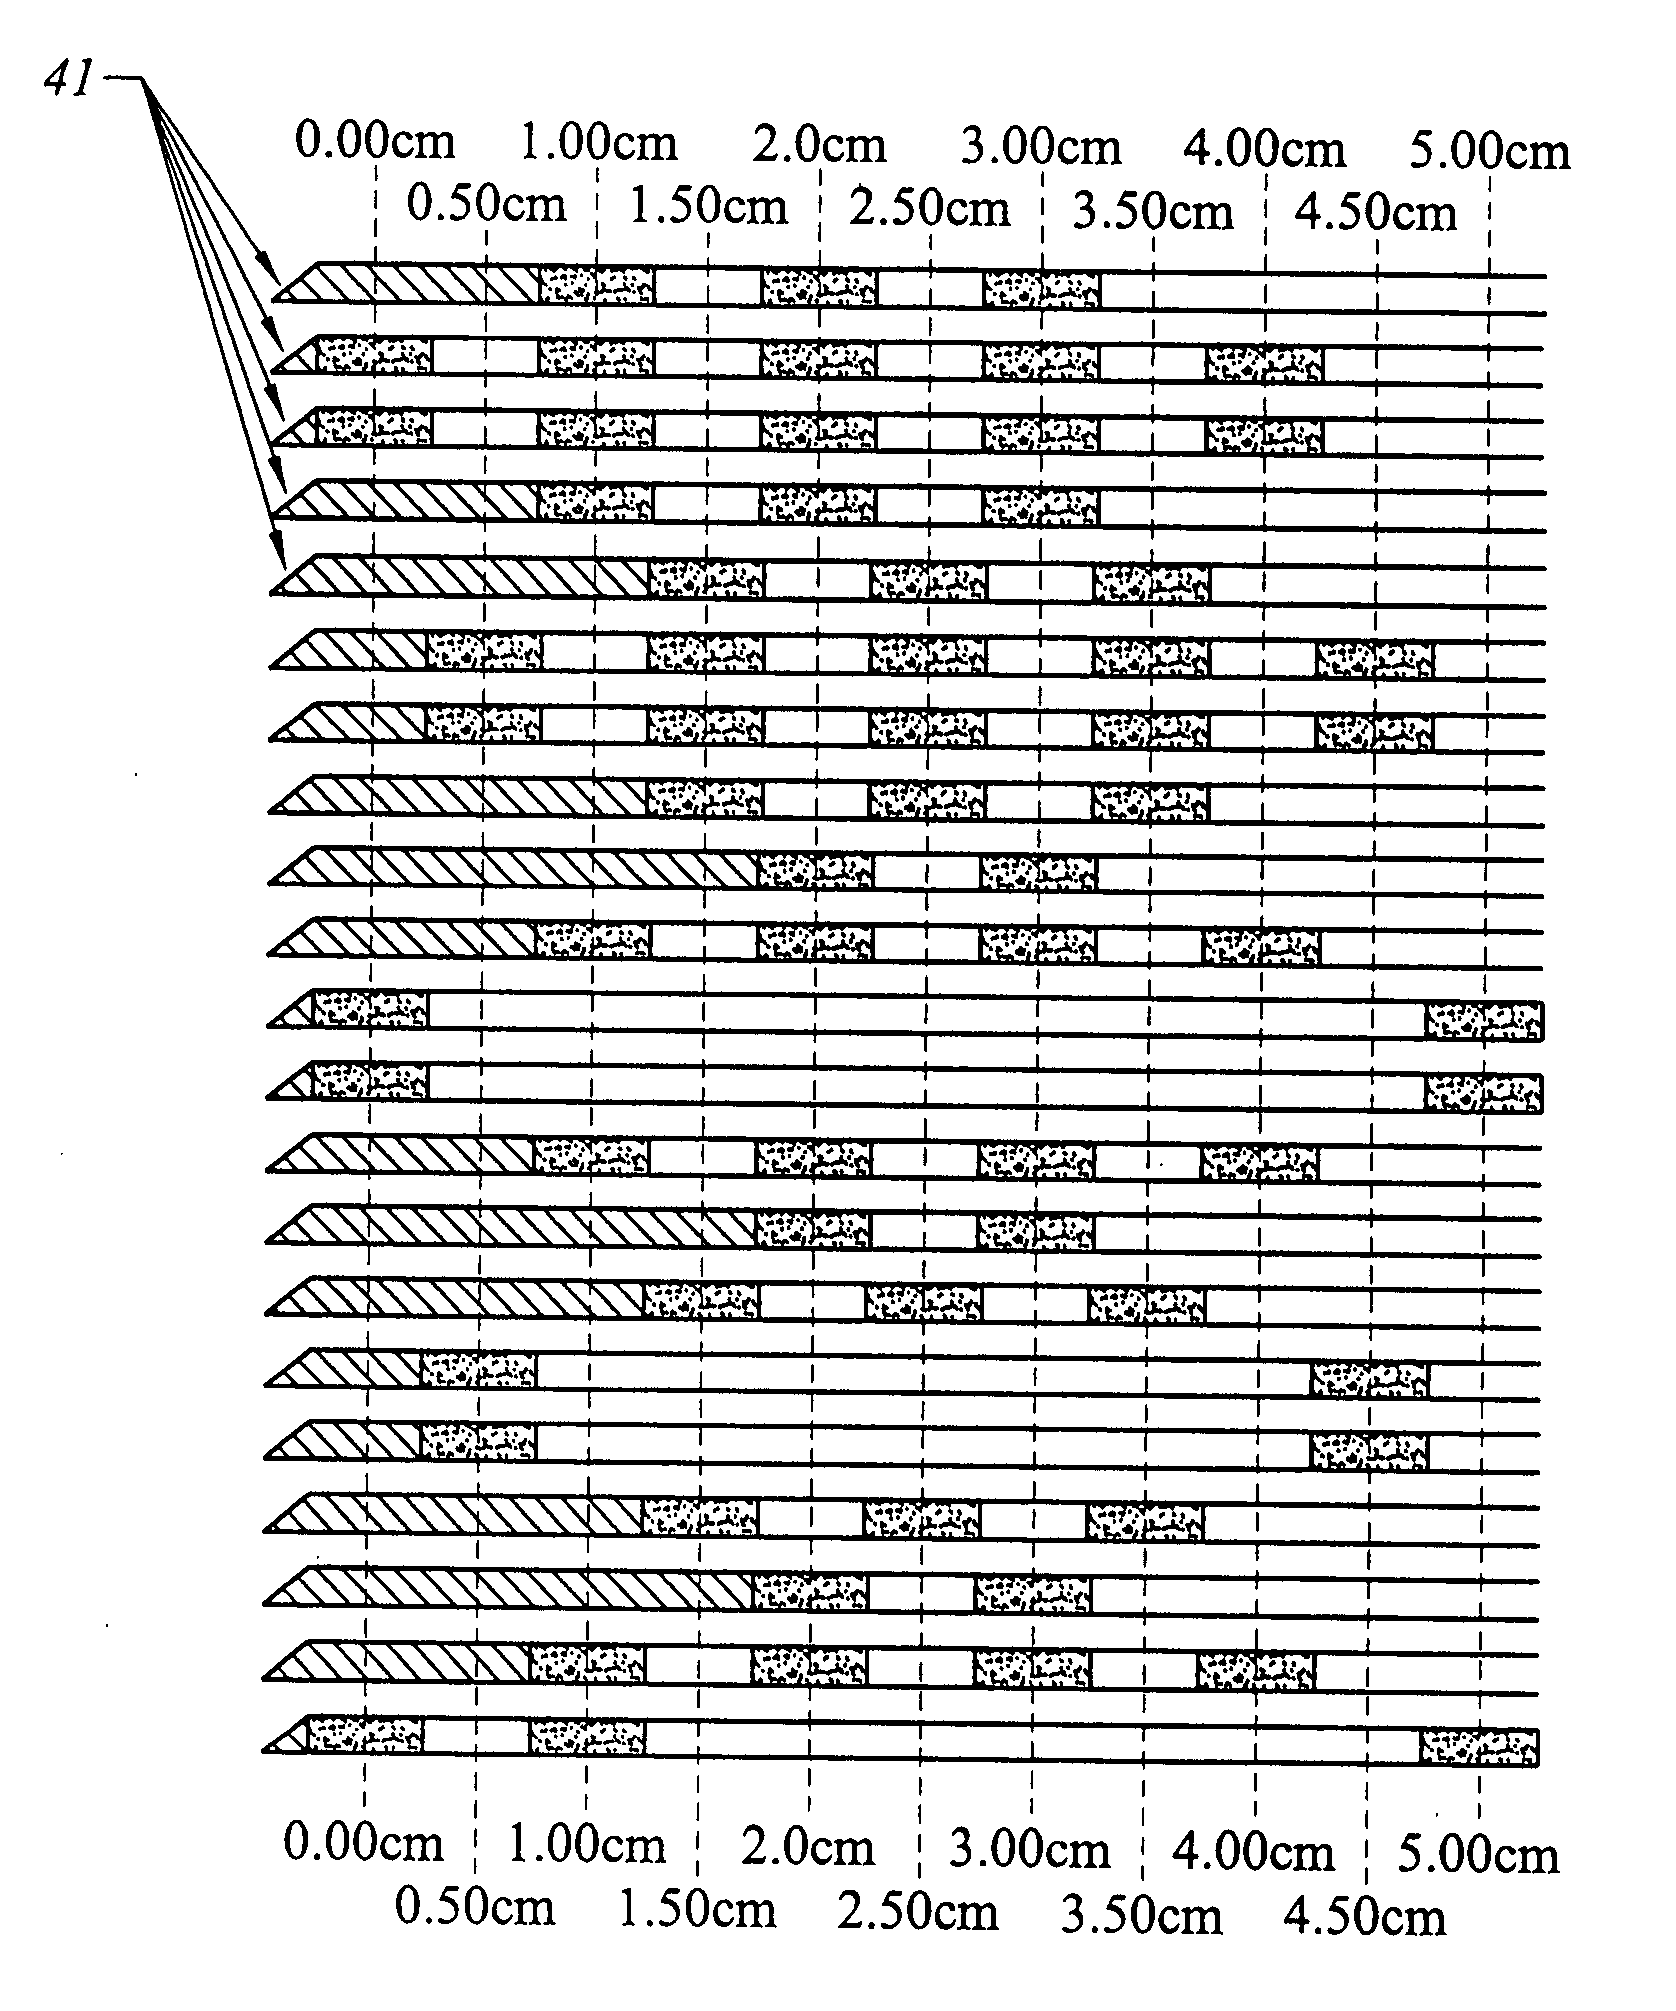 41
0.00cm 1.00cm 2.0cm 3.00cm 4.00cm 5.00cm
0.50cm 1.50cm 2.50cm 3.50cm 4.50cm
0.00cm 1.00cm 2.0cm 3.00cm 4.00cm 5.00cm
0.50cm 1.50cm 2.50cm 3.50cm 4.50cm